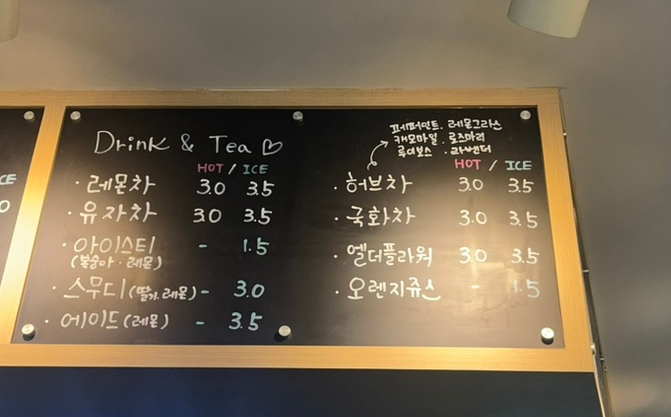 Drink & Tea ♡
HOT / ICE
· 레몬차 3.0 3.5
· 유자차 3.0 3.5
· 아이스티 - 1.5
(복숭아 · 레몬)
· 스무디 (딸기, 레몬) - 3.0
· 에이드 (레몬) - 3.5
페퍼민트 . 레몬그라스
캐모마일 . 로즈마리
루이보스 . 라벤더
HOT / ICE
· 허브차 3.0 3.5
· 국화차 3.0 3.5
· 엘더플라워 3.0 3.5
· 오렌지쥬스 - 1.5
CE
0